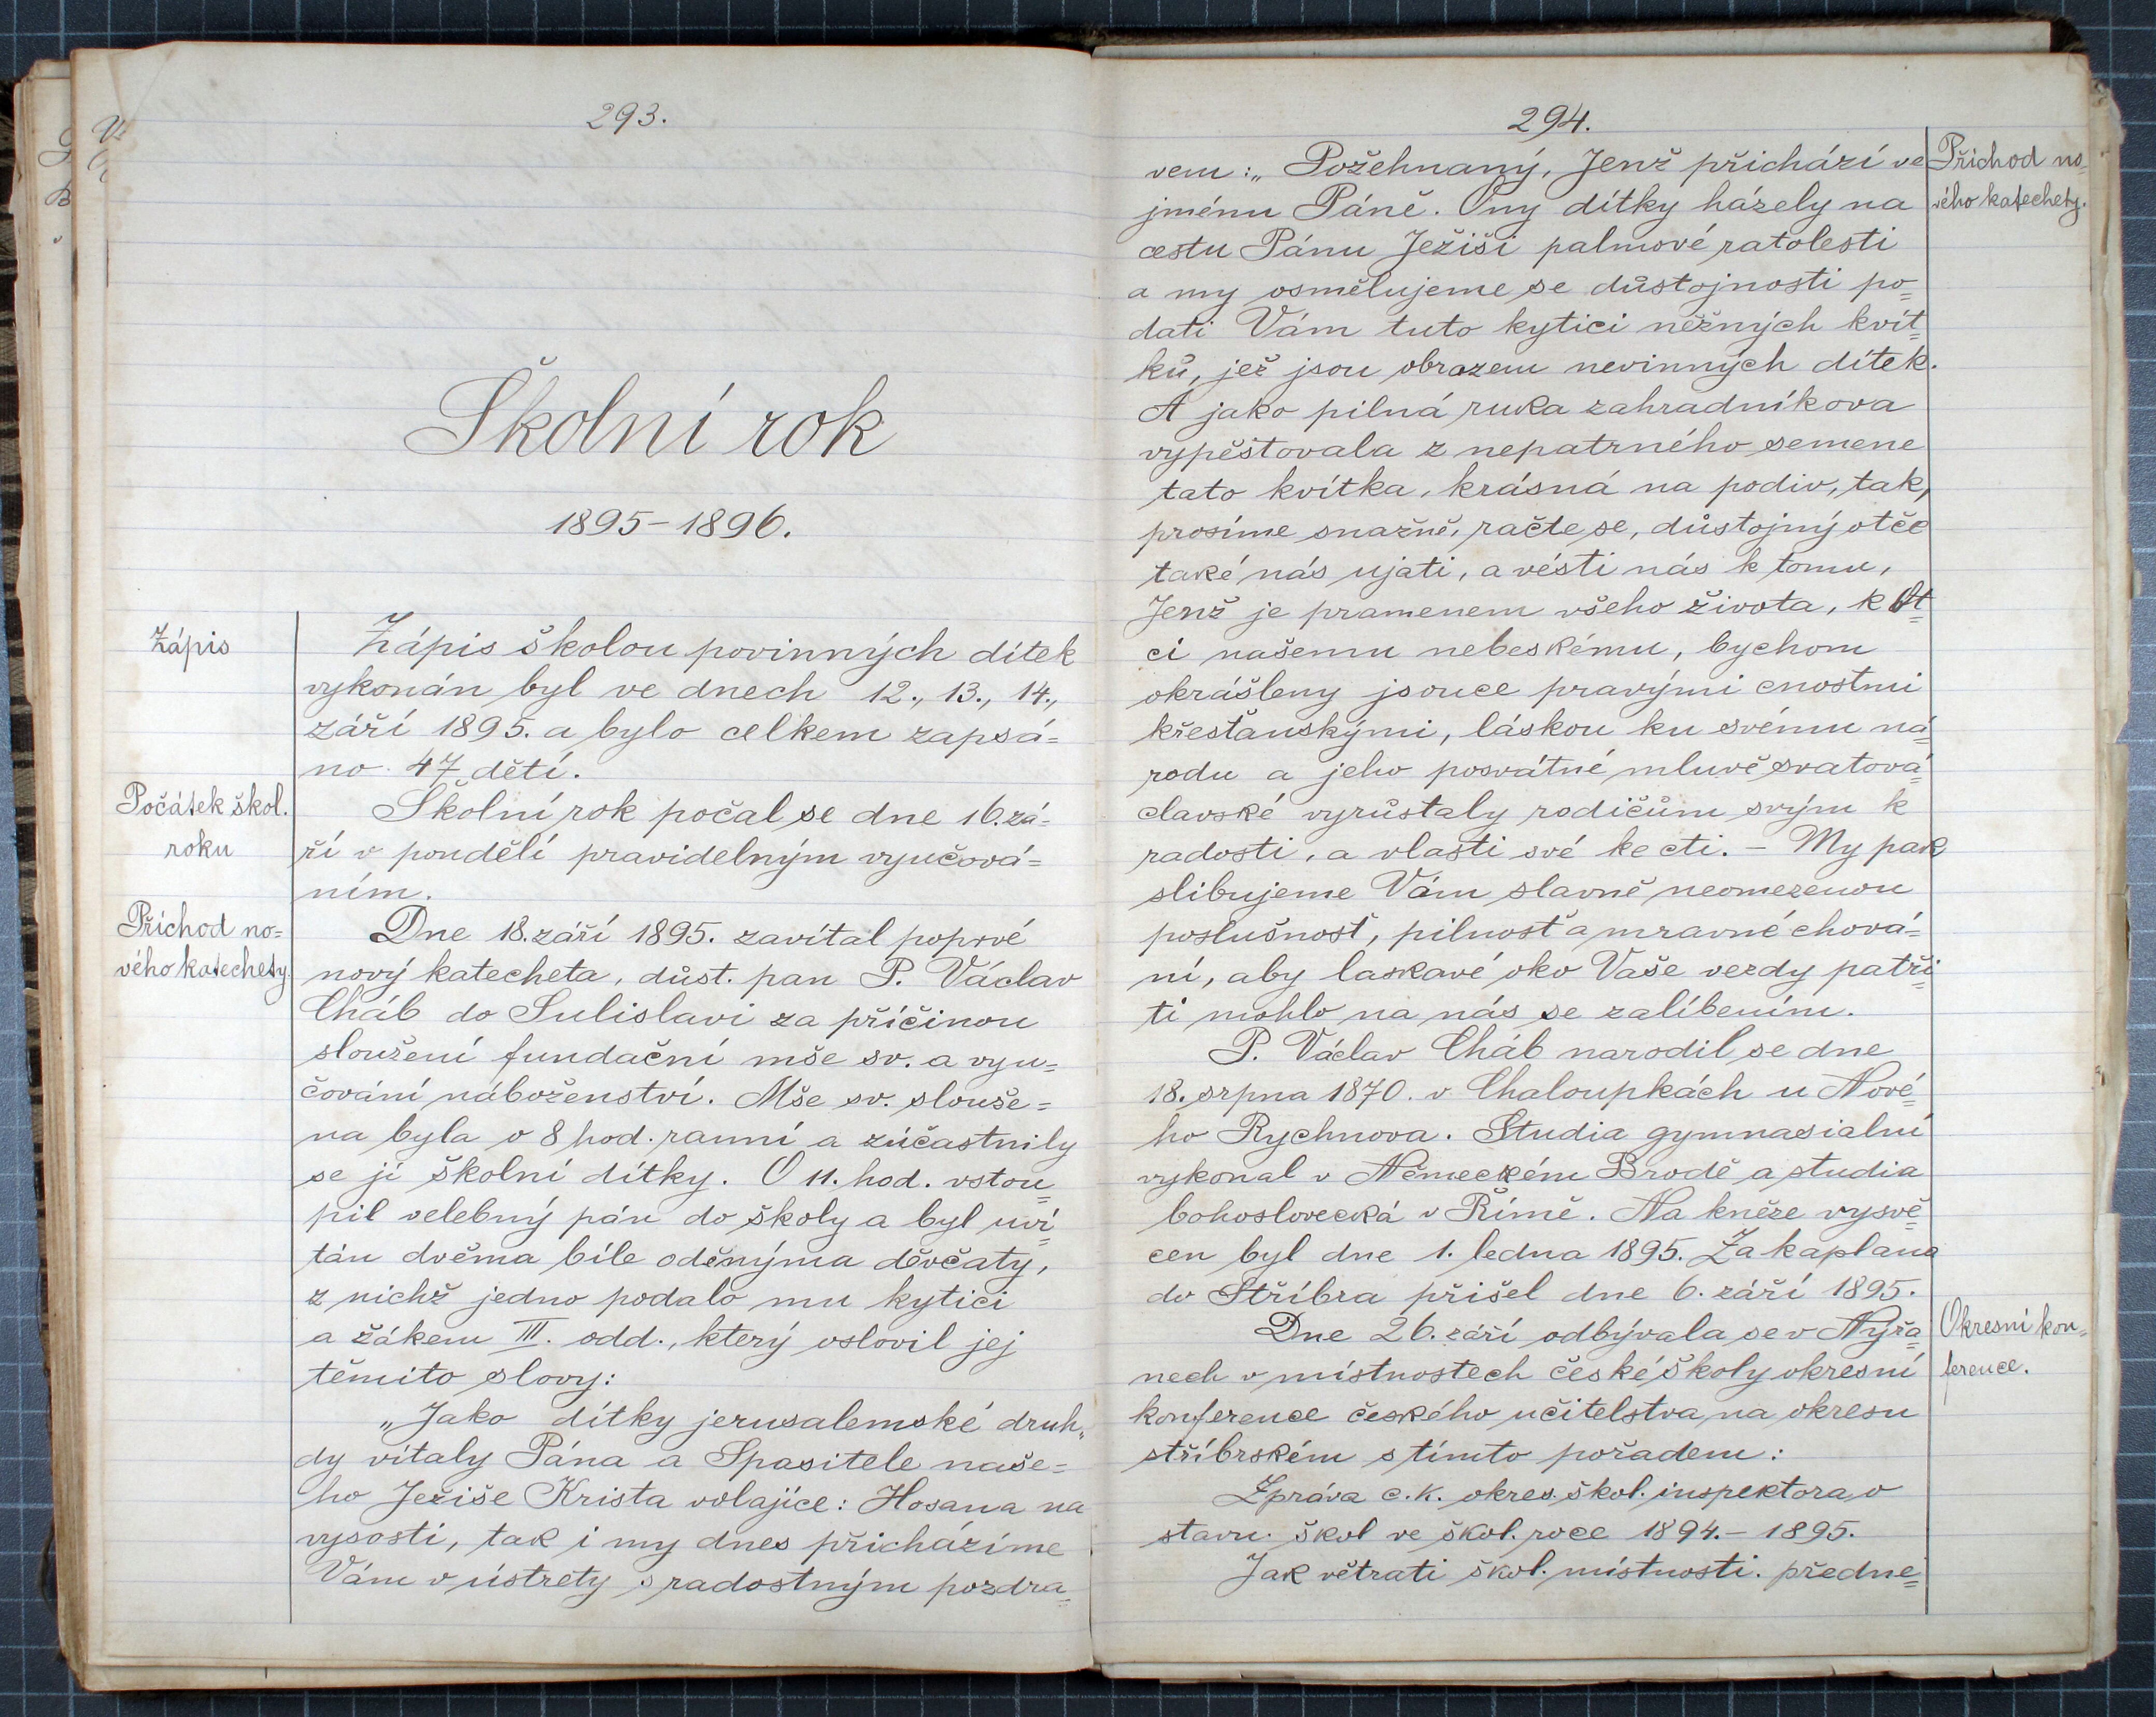 293.
Školní rok
1895-1896.
Zápis
Zápis školou povinných dítek
vykonán byl ve dnech 12., 13., 14.,
září 1895. a bylo celkem zapsá=
no 47 dětí.
Počátek škol.
roku
Školní rok počal se dne 16. zá=
ří v pondělí pravidelným vyučová=
ním.
Příchod no=
vého katechety.
Dne 18. září 1895. zavítal poprvé
nový katecheta, důst. pan P. Václav
Cháb do Sulislavi za příčinou
sloužení fundační mše sv. a vyu=
čování náboženství. Mše sv. slouže=
na byla o 8 hod. ranní a zúčastnily
se jí školní dítky. O 11. hod. vstou=
pil velebný pán do školy a byl uví=
tán dvěma bíle oděnýma děvčaty,
z nichž jedno podalo mu kytici
a žákem III. odd., který oslovil jej
těmito slovy:
„Jako dítky jerusalemské druh=
dy vítaly Pána a Spasitele naše=
ho Ježiše Krista volajíce: Hosana na
vysosti, tak i my dnes přicházíme
Vám v ústrety s radostným pozdra=
294.
Příchod no=
vého katechety.
vem: „Požehnaný, Jenž přichází ve
jménu Páně. Ony dítky házely na
cestu Pánu Ježiši palmové ratolesti
a my osmělujeme se důstojnosti po=
dati Vám tuto kytici něžných kvít=
ků, jež jsou obrazem nevinných dítek.
A jako pilná ruka zahradníkova
vypěstovala z nepatrného semene
tato kvítka, krásná na podiv, tak,
prosíme snažně, račte se, důstojný otče
také nás ujati, a vésti nás k tomu,
Jenž je pramenem všeho života, k Ot=
ci našemu nebeskému, bychom
okrášleny jsouce pravými cnostmi
křesťanskými, láskou ku svému ná=
rodu a jeho posvátné mluvě svatová=
clavské vyrůstaly rodičům svým k
radosti, a vlasti své ke cti. – My pak
slibujeme Vám slavně neomezenou
poslušnosť, pilnosť a mravné chová=
ní, aby laskavé oko Vaše vezdy patři=
ti mohlo na nás se zalíbením.
P. Václav Cháb narodil se dne
18. srpna 1870. v Chaloupkách u Nové=
ho Rychnova. Studia gymnasialní
vykonal v Německém Brodě a studia
bohoslovecká v Římě. Na kněze vysvě=
cen byl dne 1. ledna 1895. Za kaplana
do Stříbra přišel dne 6. září 1895.
Okresní kon=
ference.
Dne 26. září odbývala se v Nýřa=
nech v místnostech české školy okresní
konference českého učitelstva na okresu
stříbrském s tímto pořadem:
Zpráva c. k. okres. škol. inspektora o
stavu škol ve škol. roce 1894.– 1895.
Jak větrati škol. místnosti. předne=